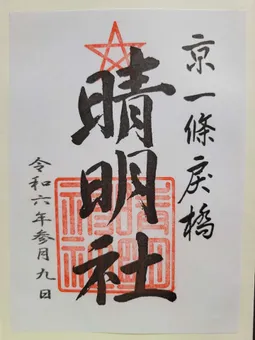 京一條戻橋
晴明社
令和六年参月九日